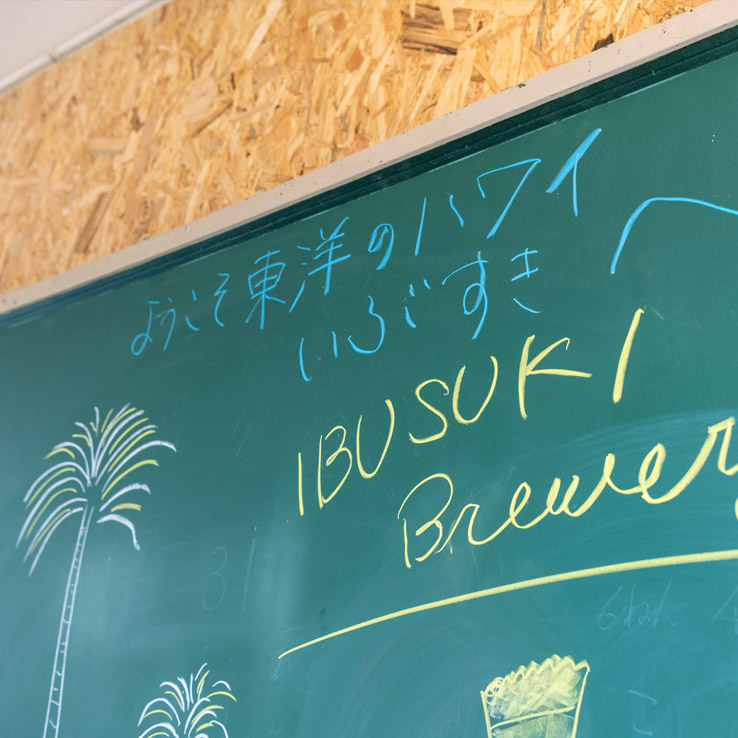 ようこそ東洋のハワイへ
いぶすき
IBUSUKI
Brewery
31
6ねん